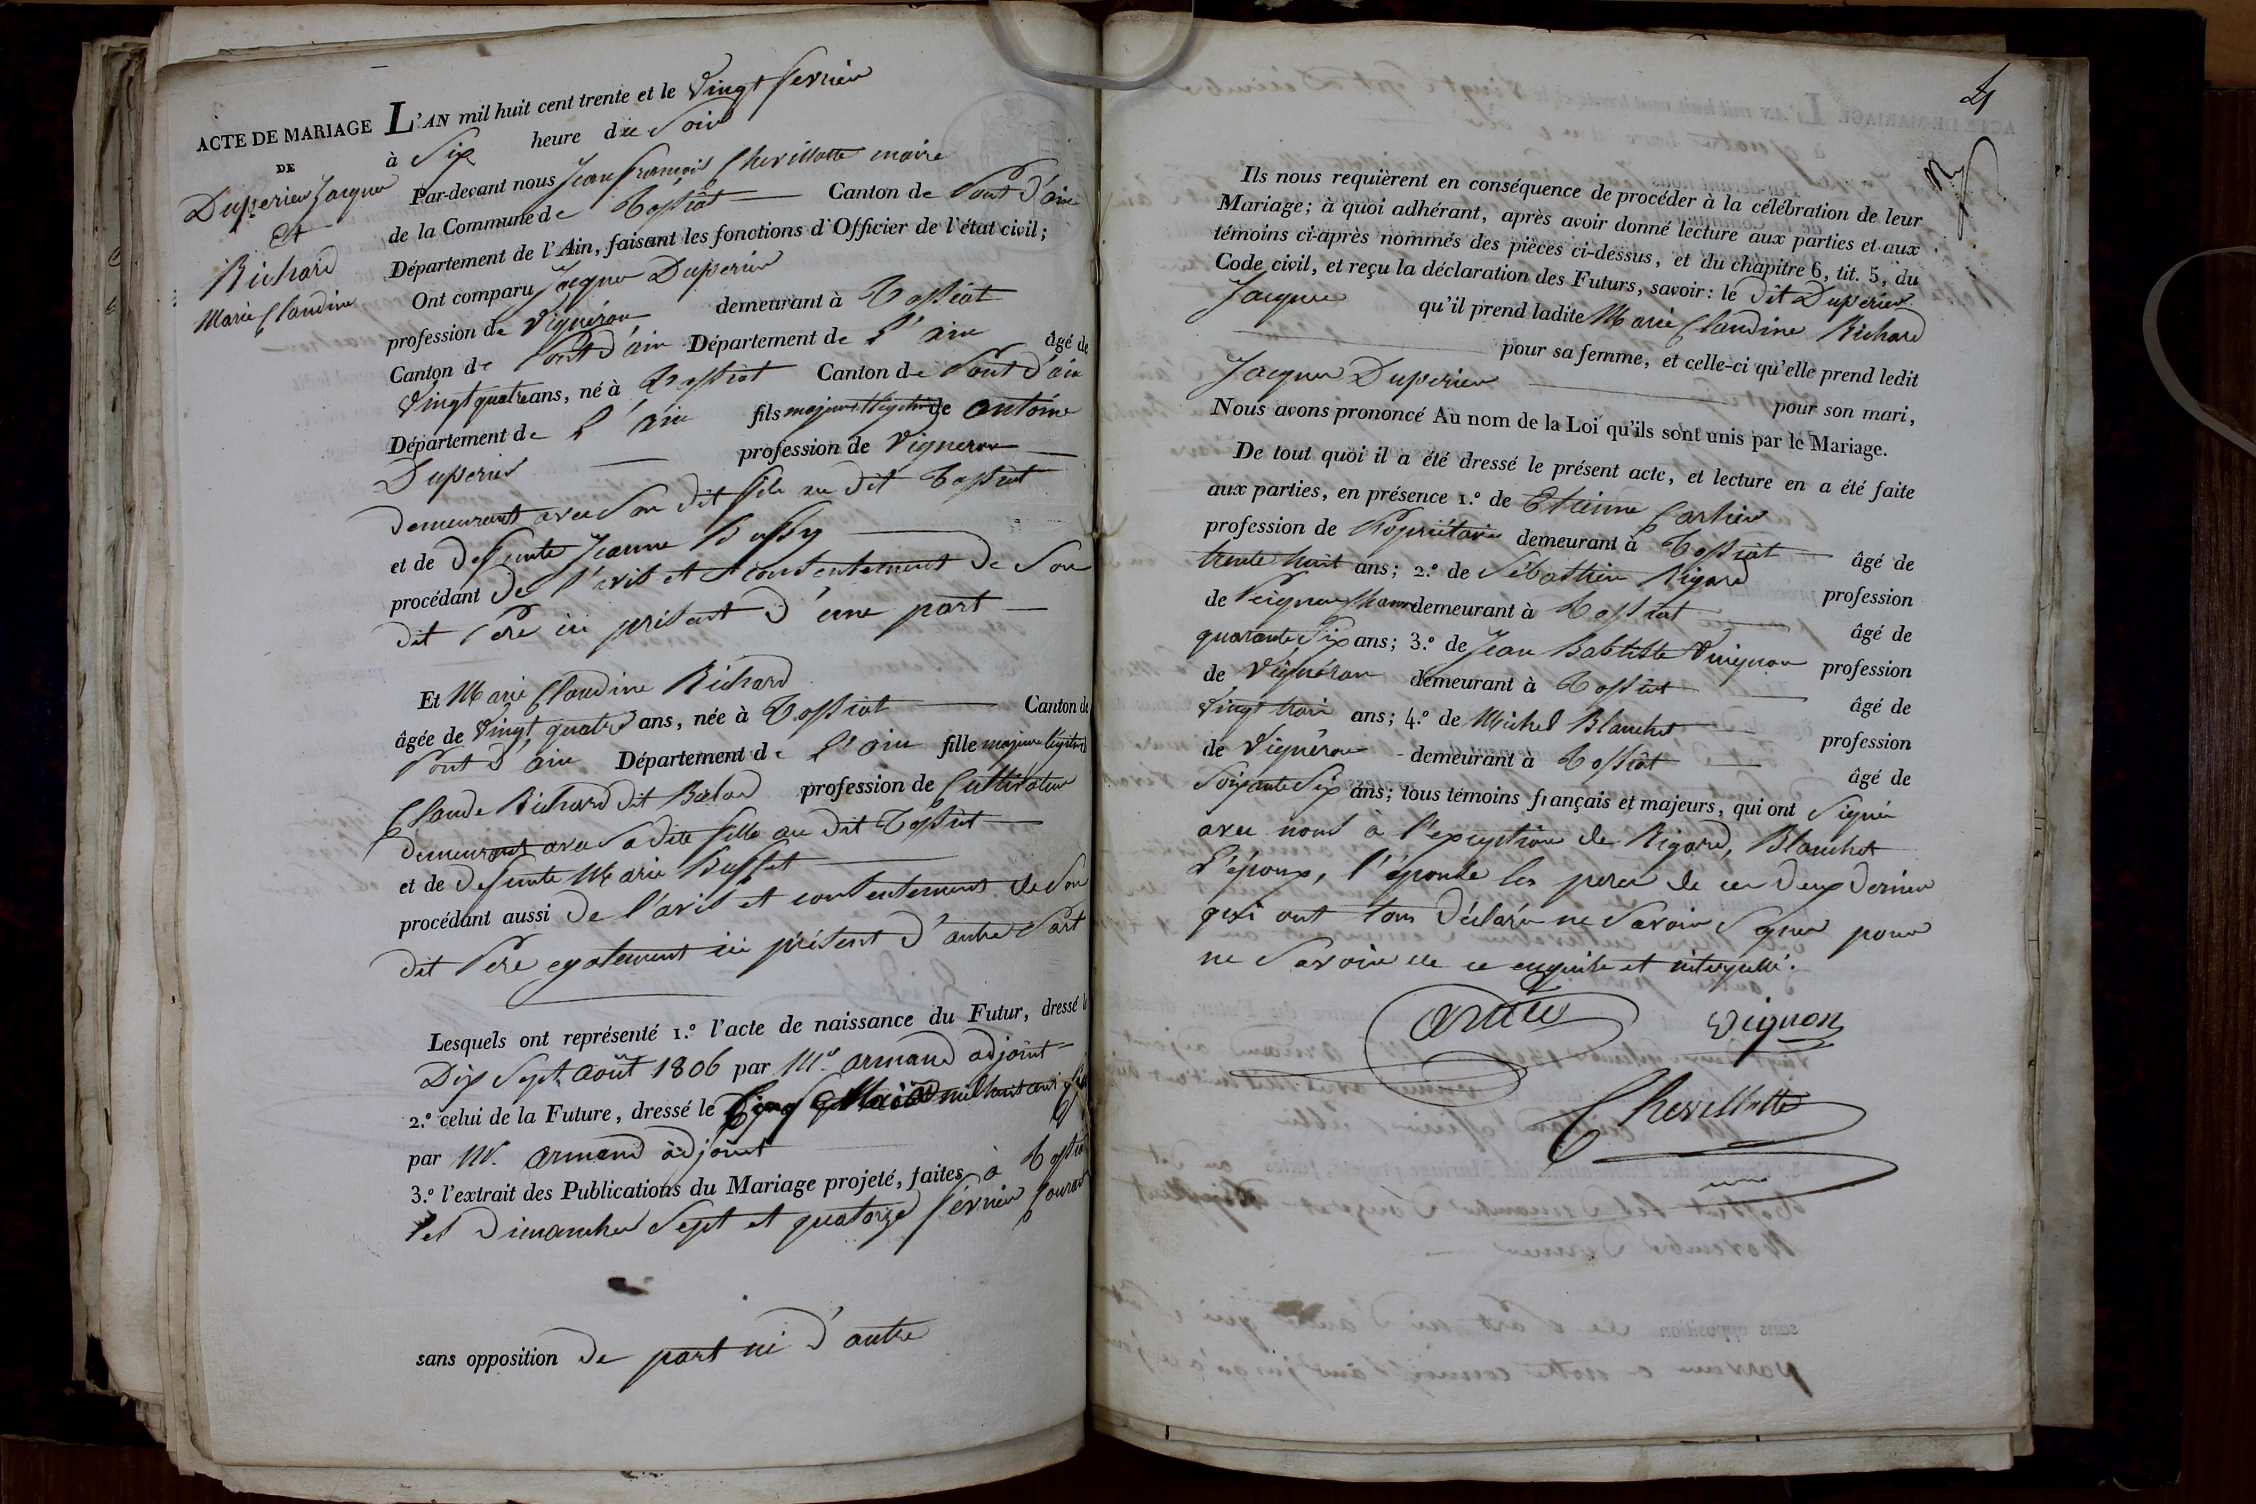 ACTE DE MARIAGE
DE
Duperier Jacques
Et
Richard
Marie Claudine
L'AN mil huit cent trente et le vingt fevrier
à Six heure du Soir
Par-devant nous Jean françois Chevillotte maire
de la Commune de Tossiat Canton de Pont d'ain
Département de l'Ain, faisant les fonctions d'Officier de l'état civil;
Ont comparu Jacques Duperier
profession de Vigneron demeurant à Tossiat
Canton de Pont d'ain Département de L'ain âgé de
Vingt quatre ans, né à Tossiat Canton de Pont d'ain
Département de L'ain fils majeur & legitime de antoine
Duperier profession de Vigneron
demeurant avec Son dit fils au dit Tossiat
et de defunte Jeanne Bossy
procédant De l'avis et consentement de Son
dit Pere ici présent d'une part
Et Marie Claudine Richard
âgée de Vingt quatre ans, née à Tossiat Canton de
Pont d'ain Département de L'ain fille majeure & legitime
Claude Richard dit profession de Cultivateur
demeurant avec Sa dite fille au dit Tossiat
et de defunte Marie Buffet
procédant aussi de l'avis et consentement de Son
dit Pere egalement ici présent d'autre Part
Lesquels ont représenté 1.º l'acte de naissance du Futur, dressé le
Dix Sept août 1806 par Mr. armand adjoint
2.º celui de la Future, dressé le Cinq mil huit cent
par Mr. armand adjoint
3.º l'extrait des Publications du Mariage projeté, faites à Tossiat
les Dimanches Sept et quatorze février Courant
sans opposition de part ni d'autre
Ils nous requièrent en conséquence de procéder à la célébration de leur
Mariage; à quoi adhérant, après avoir donné lecture aux parties et aux
témoins ci-après nommés des pièces ci-dessus, et du chapitre 6, tit. 5, du
Code civil, et reçu la déclaration des Futurs, savoir: le dit Duperier
Jacques qu'il prend ladite Marie Claudine Richard
pour sa femme, et celle-ci qu'elle prend ledit
Jacques Duperier pour son mari,
Nous avons prononcé Au nom de la Loi qu'ils sont unis par le Mariage.
De tout quoi il a été dressé le présent acte, et lecture en a été faite
aux parties, en présence 1.º de Etienne Cartier
profession de Propriétaire demeurant à Tossiat âgé de
trente huit ans; 2.º de Sébastien Rigard profession
de Peigneur Chanvre demeurant à Tossiat âgé de
quarante Six ans; 3.º de Jean Babtiste Vuignon profession
de Vigneron demeurant à Tossiat âgé de
Vingt trois ans; 4.º de Michel Blanchet profession
de Vigneron demeurant à Tossiat âgé de
Soixante Six ans; tous témoins français et majeurs, qui ont Signé
avec nous à l'exception de Rigard, Blanchet
L'époux, l'épouse les peres de ces deux derniers
qui ont tous déclaré ne Savoir Signer pour
ne Savoir de ce enquis et interpellé.
Cartier
Vignon
Chevillotte